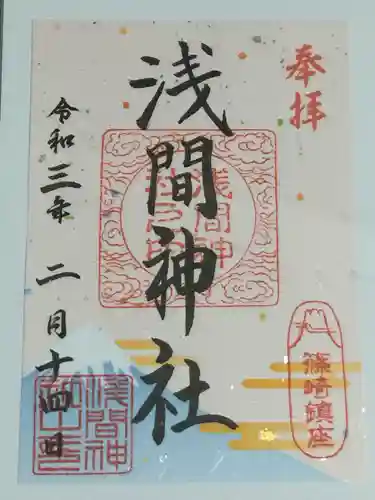 奉拝
浅間神社
令和三年 二月十四日
篠崎鎮座
浅間神